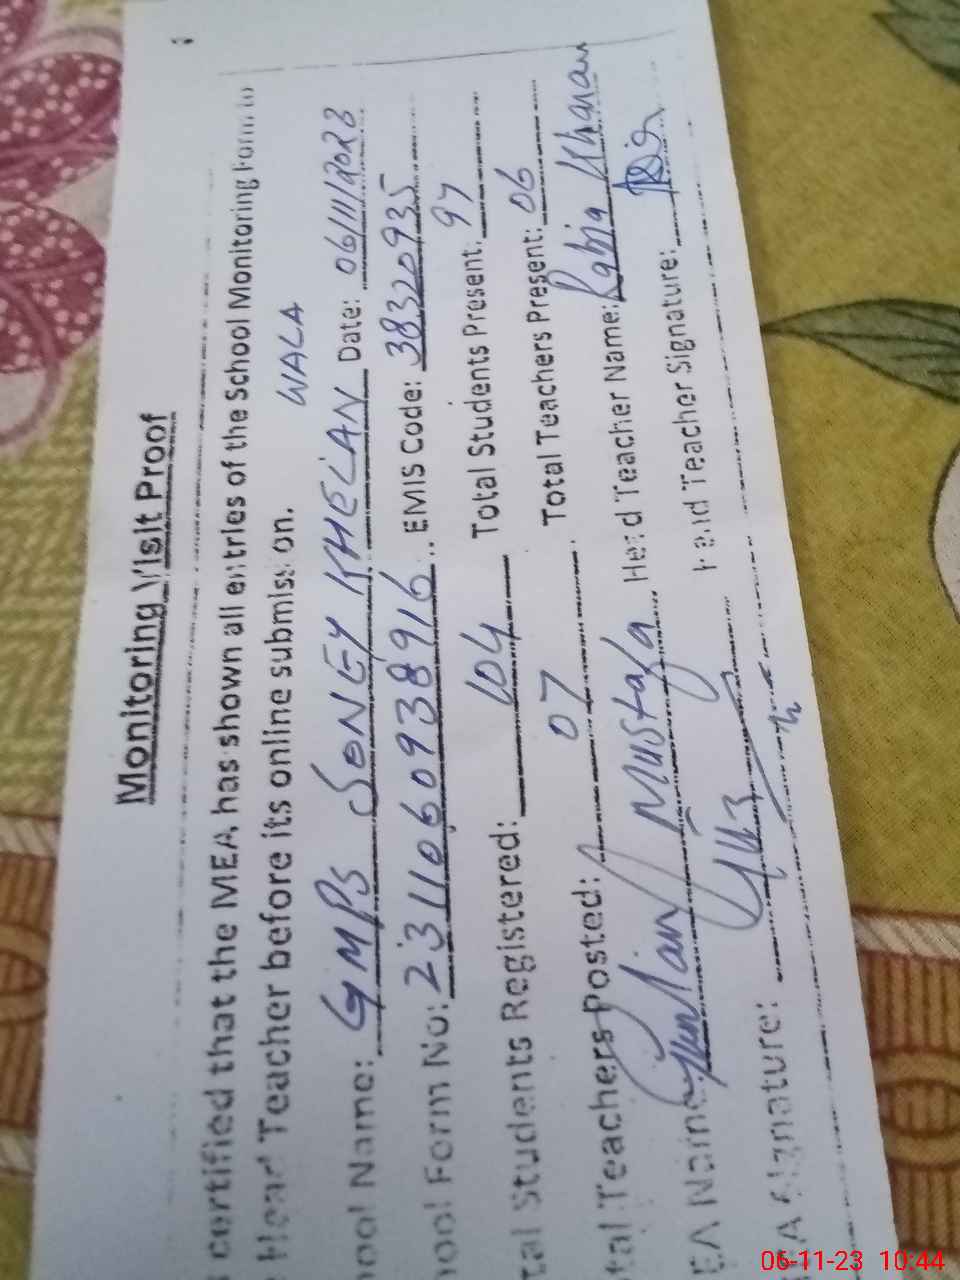 Monitoring Visit Proof
certified that the MEA has shown all entries of the School Monitoring Form to
Head Teacher before its online submission.
WALA
hool Name: GMPS SONEY KHELAN Date: 06/11/2023
hool Form No: 2311060938916 EMIS Code: 38320935
tal Students Registered: 104 Total Students Present: 97
tal Teachers Posted: 07 Total Teachers Present: 06
EA Name: Mustafa Head Teacher Name: Rabia Khanam
EA Signature: Head Teacher Signature:
06-11-23 10:44